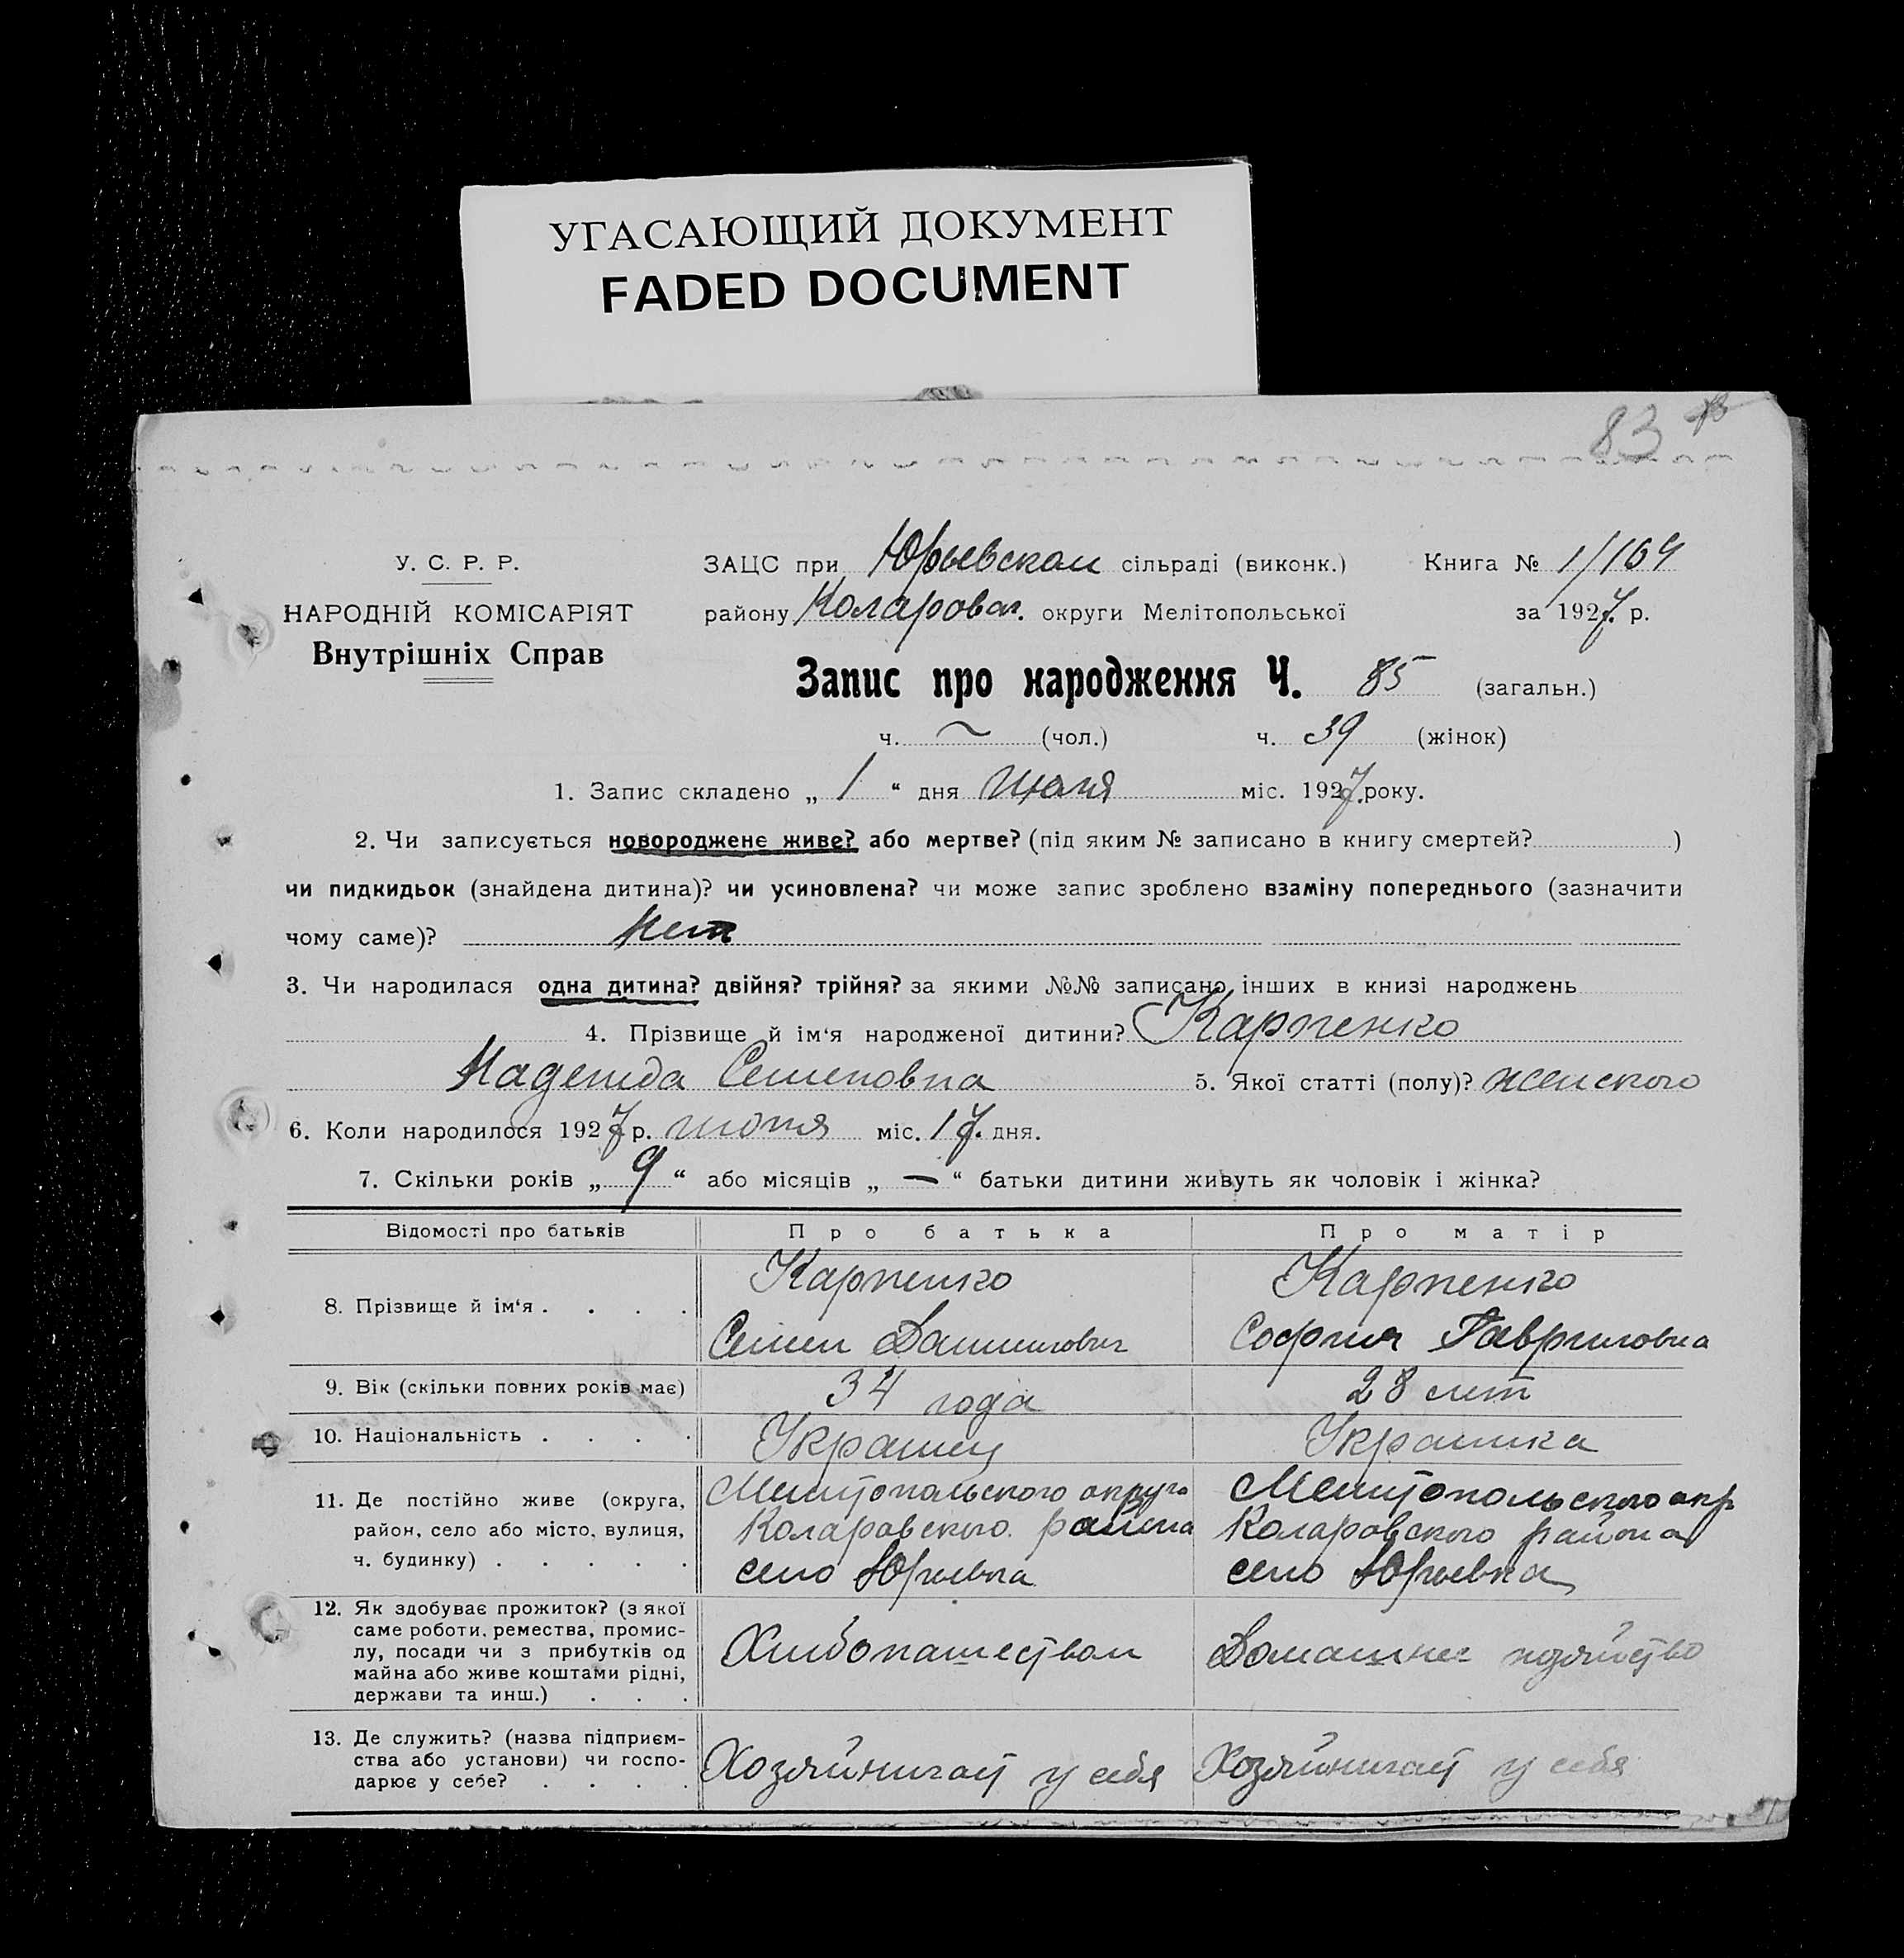 УГАСАЮЩИЙ ДОКУМЕНТ
FADED DOCUMENT
83
У. С. Р. Р.
НАРОДНІЙ КОМІСАРІЯТ
Внутрішніх Справ
ЗАЦС при Юрьевском сільраді (виконк.) Книга № 1/164
району Коларовск. округи Мелітопольської за 1927 р.
Запис про народження Ч. 85 (загальн.)
ч. ~ (чол.) ч. 39 (жінок)
1. Запис складено „ 1 “ дня июля міс. 1927 року.
2. Чи записується новороджене живе? або мертве? (під яким № записано в книгу смертей? )
чи пидкидьок (знайдена дитина)? чи усиновлена? чи може запис зроблено взаміну попереднього (зазначити
чому саме)? Нет
3. Чи народилася одна дитина? двійня? трійня? за якими №№ записано інших в книзі народжень
4. Прізвище й ім‘я народженої дитини? Карпенко
Надежда Семеновна 5. Якої статті (полу)? женского
6. Коли народилося 1927 р. міс. 17 дня.
7. Скільки років „ 9 “ або місяців „ — “ батьки дитини живуть як чоловік і жінка?
Відомості про батьків Про батька Про матір
8. Прізвище й ім‘я . . . . Карпенко Карпенко
Семен Данилович София Гавриловна
9. Вік (скільки повних років має) 34 года 28 лет
10. Національність . . . . Украинец Украинка
11. Де постійно живе (округа, район, село або місто, вулиця, ч. будинку) . . . . .
Мелитопольского округа Мелитопольского окр
Коларовского района Коларовского района
село Юрьевка село Юрьевка
12. Як здобуває прожиток? (з якої
саме роботи, ремества, промис-
лу, посади чи з прибутків од
майна або живе коштами рідні,
держави та инш.) . . .
Хлебопашеством Домашнее хозяйство
13. Де служить? (назва підприєм-
ства або установи) чи госпо-
дарює у себе? . . . .
Хозяйничает у себя Хозяйничает у себя